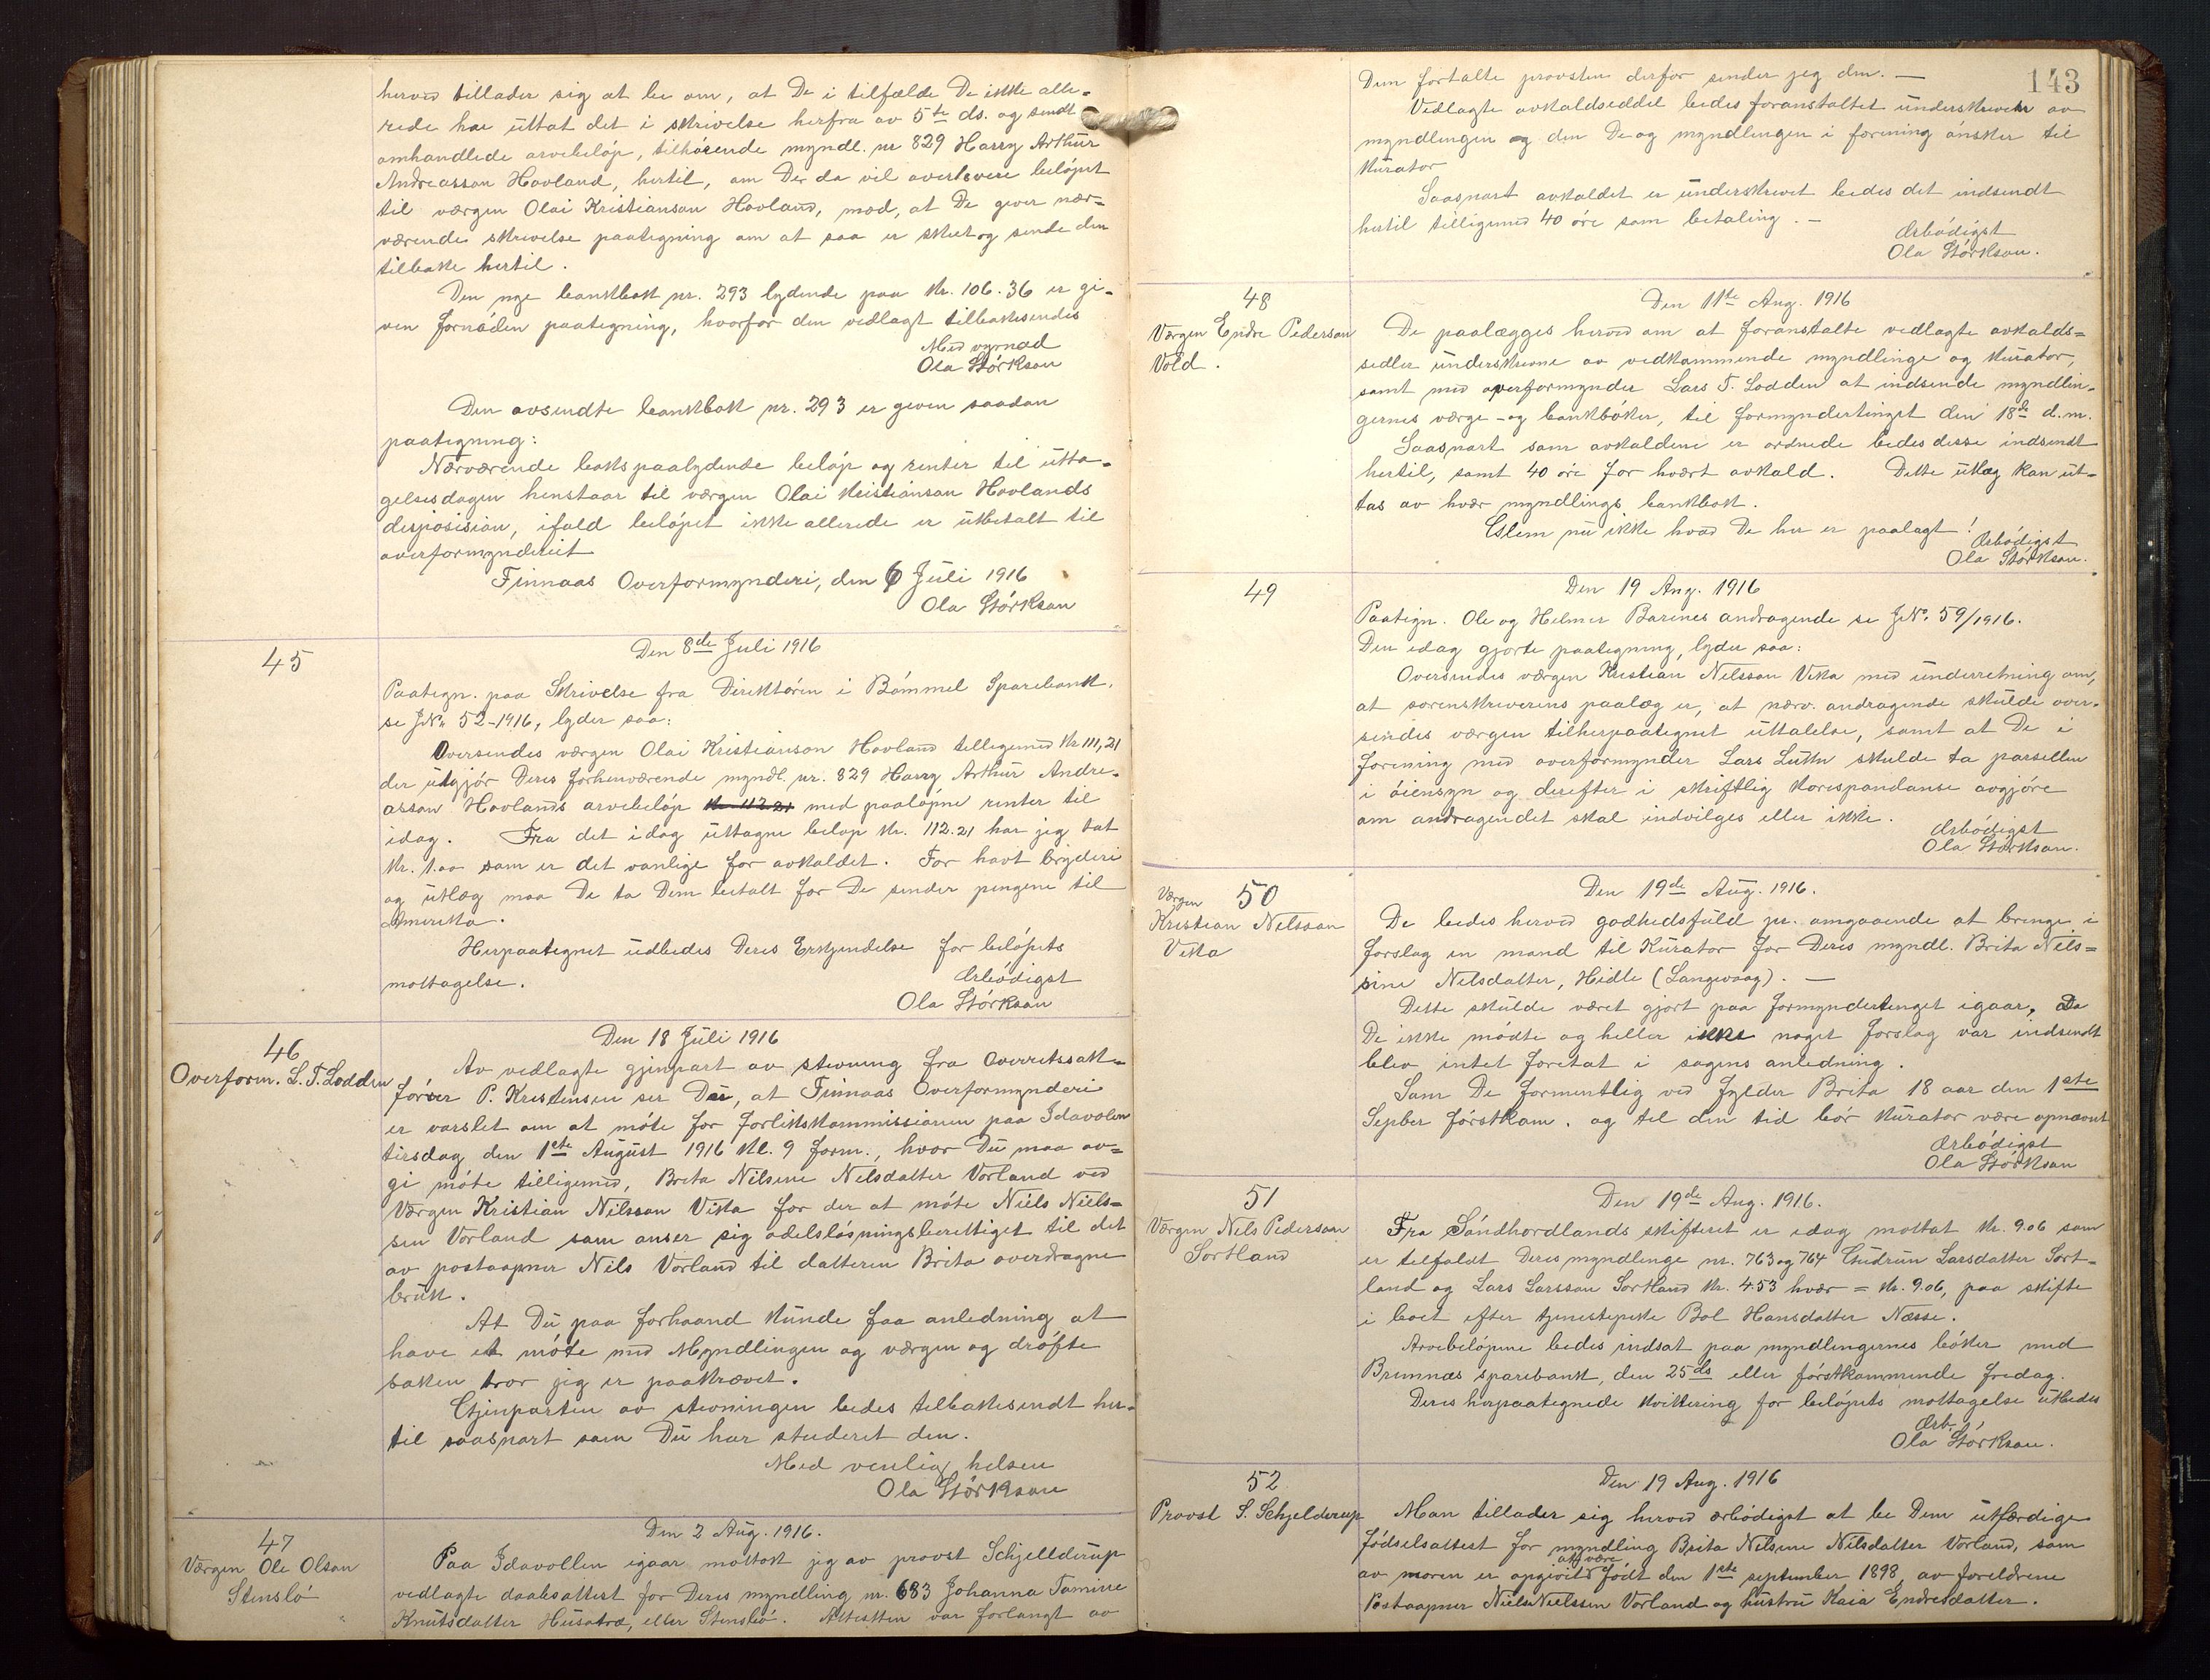 herved tillader sig at be om, at De i tilfælde De ikke alle-
rede har uttat det i skrivelse herfra av 5te ds. og sendt
omhandlede arvebeløp, tilhørende myndl. nr 829 Harry Arthur
Andreasson Hovland, hertil, om De da vil overlevere beløpet
til værgen Olai Kristianson Hovland, mod, at De giver nær-
værende skrivelse paategning om at saa er skeet og sende den
tilbake hertil.
Den nye bankbok nr. 293 lydende paa Kr. 106.36 er gi-
ven fornøden paategning, hvorfor den vedlagt tilbakesendes
Med vyrnad
Ola Størkson
Den avsendte bankbok nr. 293 er given saadan
paategning:
Nærværende boks paalydende beløp og renter til utta-
gelsesdagen henstaar til værgen Olai Kristianson Hovlands
disposision, ifald beløpet ikke allerede er utbetalt til
overformynderiet
Finnaas Overformynderi, den 6 Juli 1916
Ola Størkson
45
Den 8de Juli 1916
Paategn. paa Skrivelse fra Direktøren i Bømmel Sparebank.
se J.Nr. 52-1916, lyder saa:
Oversendes værgen Olai Kristianson Hovland tillegemed Kr 111,21
der utgjør Deres forhenværende myndl. nr. 829 Harry Arthur Andre-
asson Hovlands arvebeløp Kr. 112.21 med paaløpne renter til
idag. Fra det idag uttagne beløp Kr. 112.21 har jeg tat
Kr. 1.00 som er det vanlige for avkaldet. For havt bryderi
og utlæg maa De ta Dem betalt før De sender pengene til
Amerika.
Herpaategnet udbedes Deres Erkjendelse for beløpets
mottagelse.
Ærbødigst
Ola Størkson
46
Overform. L. T. Lodden
Den 18 Juli 1916
Av vedlagte gjenpart av stevning fra Overretssak-
fører P. Kristensen ser Du, at Finnaas Overformynderi
er varslet om at møte for forlikskommissionen paa Idavollen
tirsdag den 1ste August 1916 Kl. 9 form., hvor Du maa av-
gi møte tilligemed, Brita Nilsine Nilsdatter Vorland ved
Værgen Kristian Nilsson Vika for der at møte Niels Niels-
sen Vorland som anser sig odelsløsningsberettiget til det
av postaapner Nils Vorland til datteren Brita overdragne
bruk.
At Du paa forhaand kunde faa anledning at
have et møte med Myndlingen og værgen og drøfte
saken tror jeg er paakrævet.
Gjenparten av stevningen bedes tilbakesendt her-
til saasnart som Du har studeret den.
Med venlig helsen
Ola Størkson
47
Værgen Ole Olson
Stensbø
Den 2 Aug. 1916.
Paa Idavollen igaar mottok jeg av provst Schjellderup
vedlagte daabsattest for Deres myndling nr. 683 Johanna Tamine
Knutsdatter Husatræ, eller Stensbø. Attesten var forlangt av
143
Dem fortalte provsten derfor sender jeg den. —
Vedlagte avkaldseddel bedes foranstaltet underskreven av
myndlingen og den De og myndlingen i forening ønsker til
Kurator
Saasnart avkaldet er underskrevet bedes det indsendt
hertil tilligemed 40 øre som betaling. —
Ærbødigst
Ola Størkson.
48
Værgen Endre Pederson
Vold.
Den 11te Aug. 1916
De paalægges herved om at foranstalte vedlagte avkalds-
sedler underskrevne av vedkommende myndlinge og kurator,
samt med overformynder Lars T. Lodden at indsende myndlin-
gernes værge- og bankbøker, til formyndertinget den 18de d.m.
Saasnart som avkaldene er ordnede bedes disse indsendt
hertil, samt 40 øre for hvært avkald. Dette utlæg kan ut-
tas av hvær myndlings bankbok.
Glem nu ikke hvad De her er paalagt!
Ærbødigst
Ola Størkson.
49
Den 19 Aug. 1916
Paategn. Ole og Helmer Barines andragende se J.No. 59/1916.
Den idag gjorte paategning, lyder saa:
Oversendes værgen Kristian Nilsson Vika med underretning om,
at sorenskriverens paalæg er, at nærv. andragende skulde over-
sendes værgen til herpaategnet uttalelse, samt at De i
forening med overformynder Lars Lütte skulde ta parsellen
i øiensyn og derefter i skriftlig korespondanse avgjøre
om andragendet skal indvilges eller ikke.
Ærbødigst
Ola Størkson.
50
Værgen
Kristian Nilsson
Vika
Den 19de Aug. 1916.
De bedes herved godhedsfuld pr. omgaaende at bringe i
forslag en mand til Kurator for Deres myndl. Brita Nils-
sine Nilsdatter, Hidle (Langevaag). —
Dette skulde været gjort paa formyndertinget igaar, Da
De ikke mødte og heller ikke noget forslag var indsendt
blev intet foretat i sagens anledning.
Som De formentlig ved fylder Brita 18 aar den 1ste
Sepber førstkom. og til den tid bør kurator være opnævnt
Ærbødigst
Ola Størkson
51
Værgen Nels Pederson
Sortland
Den 19de Aug. 1916.
Fra Søndhordlands skifteret er idag mottat Kr. 9.06 som
er tilfaldt Deres myndlinge nr. 763 og 764 Gudrun Larsdatter Sort-
land og Lars Larsson Sortland Kr. 4.53 hvær = Kr. 9.06, paa skifte
i boet efter tjenestepike Bol Hansdatter Næsse.
Arvebeløpene bedes indsat paa myndlingernes bøker med
Bremnæs sparebank, den 25ds eller førstkommende fredag.
Deres herpaategnede kvittering for beløpets mottagelse utbedes
Ærb.
Ola Størkson.
52
Provst S. Schjelderup
Den 19 Aug. 1916
Man tillader sig herved ærbødigst at be Dem utfærdige
fødselsattest for myndling Brita Nilsine Nilsdatter Vorland, som
av moren er opgivit at være født den 1ste september 1898 av foreldrene
Postaapner Niels Nielssen Vorland og hustru Kaia Endresdatter.